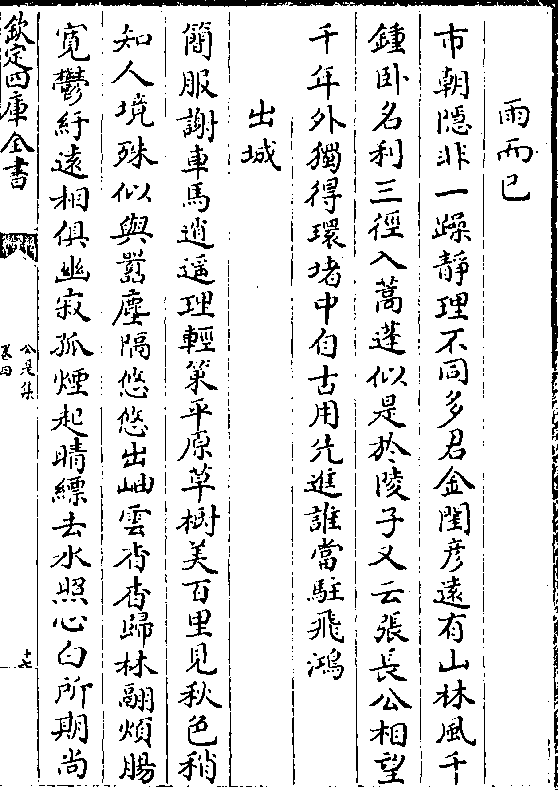 雨而已
市朝隱非一躁靜理不同多君金閨彦遠有山林風千
鍾卧名利三徑入蒿蓬似是於陵子又云張長公相望
千年外獨得環堵中自古用先進誰當駐飛鴻
出城
簡服謝車馬逍遥理輕策平原草樹美百里見秋色稍
知人境殊似與嚣塵隔悠悠出岫雲杳杳歸林翮煩腸
寛鬱紆遠相俱幽寂孤煙起晴縹去水照心白所期尚
欽定四庫全書
公是集
卷四
十七